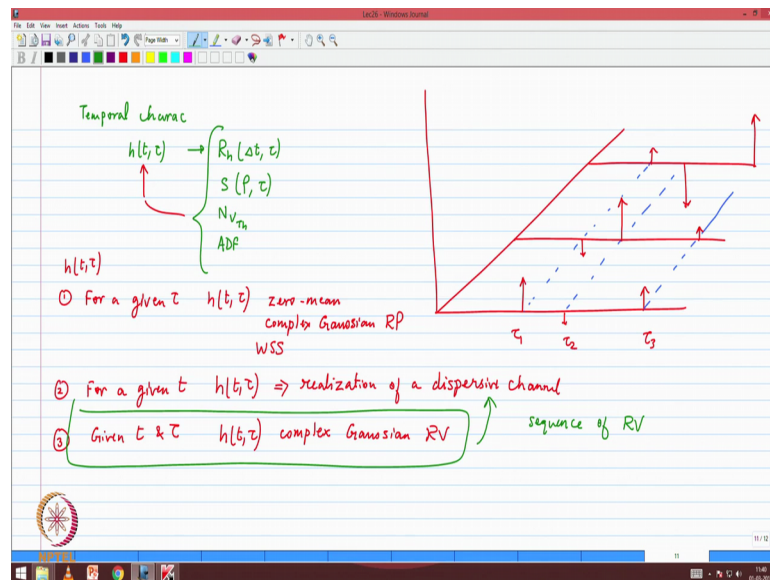 Lec26 - Windows Journal
File Edit View Insert Actions Tools Help
Page Width
B I
Temporal charac
h(t, τ) → R_h (Δt, τ)
S (ρ, τ)
N_{V_Th}
ADF
h(t, τ)
① For a given τ h(t, τ) zero-mean
complex Gaussian RP
WSS
② For a given t h(t, τ) ⇒ realization of a dispersive channel
③ Given t & τ h(t, τ) complex Gaussian RV
sequence of RV
τ₁ τ₂ τ₃
NPTEL
11 / 12
11
11:40